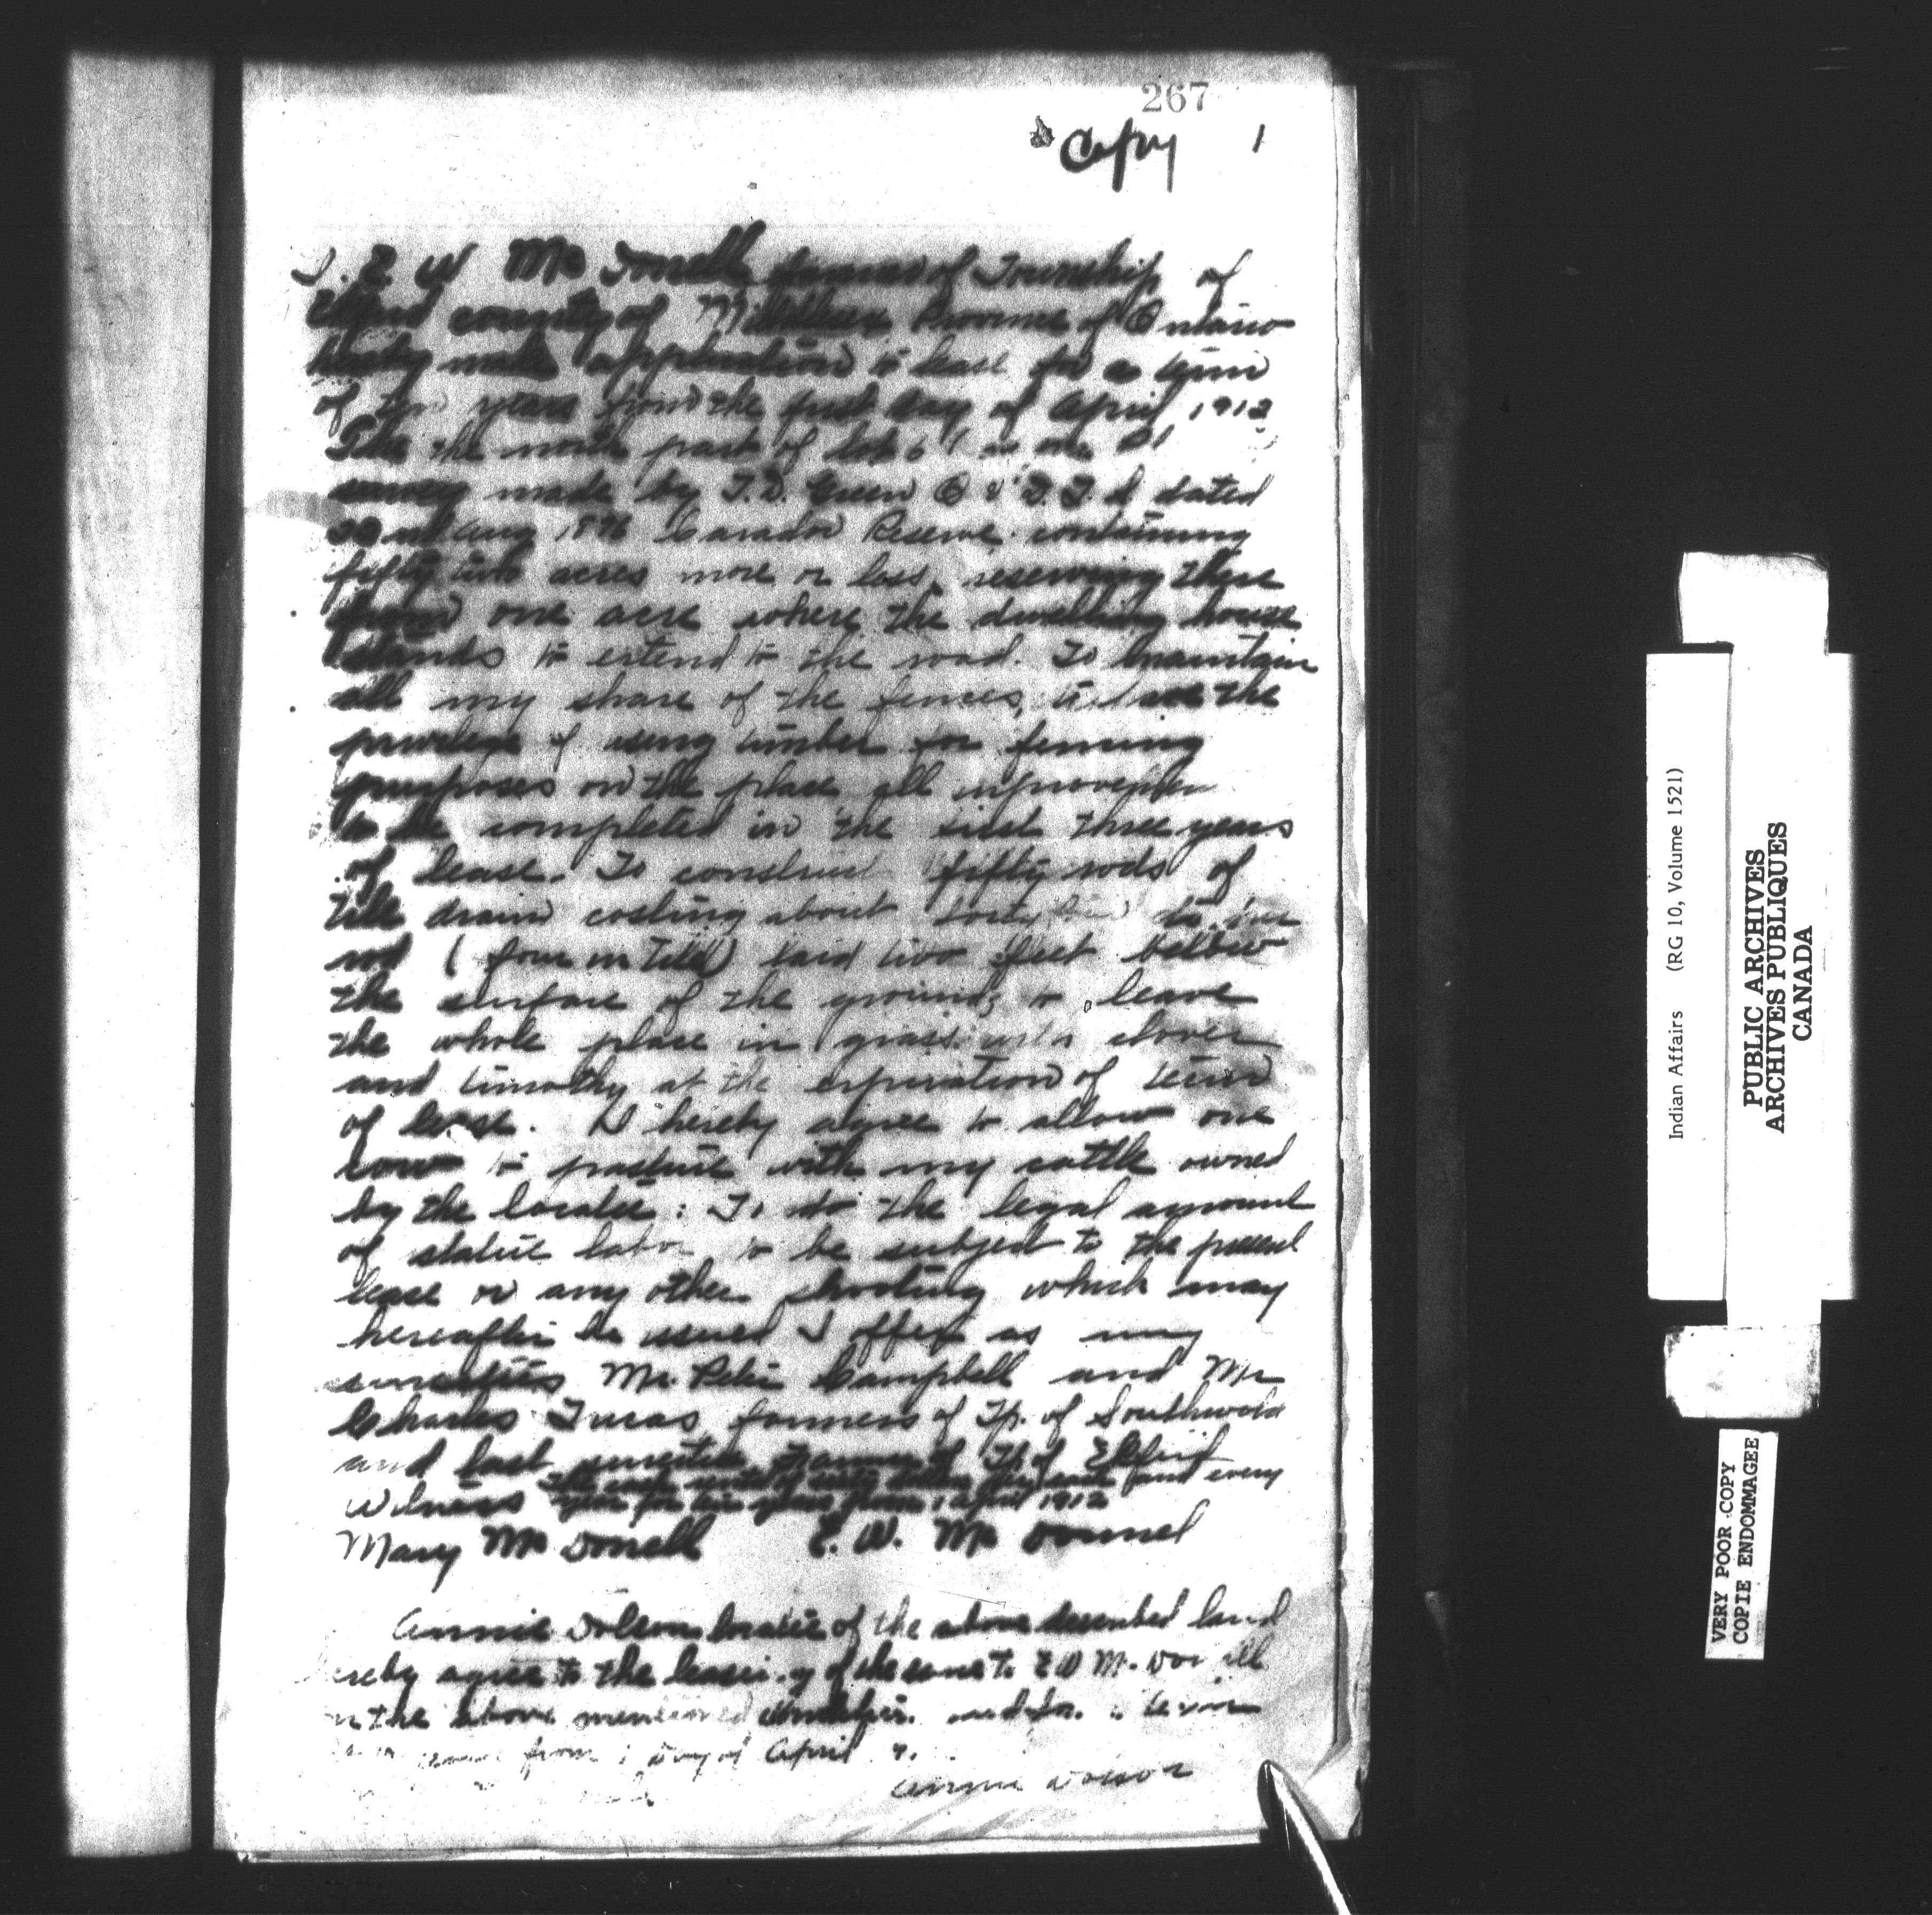 267
Copy 1
I. E. W Mc Donell farmer of Township of
Ekfrid county of Middlesex Province of Ontario
hereby make application to lease for a term
of ten years from the first day of April 1912
The the north part of lot 6
survey made by T. D. Green dated
Aug 1896 Caradoc Reserve containing
fifty two acres more or less, reserving there
from one acre where the dwelling house
stands to extend to the road. To maintain
all my share of the fences, to have the
privilege of using timber for fencing
purposes on the place all improvements
to be completed in the first three years
of lease. To construct fifty rods of
tile drain costing about
rod (four in tile) laid two feet bellow
the surface of the ground; to leave
the whole place in grass with clover
and timothy at the expiration of term
of lease. I hereby agree to allow one
cow to pasture with my cattle owned
by the locatee: To do the legal amount
of statute labor to be subject to the present
lease or any other which may
hereafter be issued I offer as my
sureties Mr. Peter Campbell and Mr
Charles Lucas farmers of Tp. of Southwold
and last Tp of Ekfrid
and every
Witness year for ten years from 1 April 1912
Mary Mc Donell E. W. Mc Donnel
Annie Dolson locatee of the above described land
hereby agree to the leasing of the same to E W Mc Donell
the above mentioned
from 1 day of April
Annie Dolson
Indian Affairs (RG 10, Volume 1521)
PUBLIC ARCHIVES
ARCHIVES PUBLIQUES
CANADA
VERY POOR COPY
COPIE ENDOMMAGEE